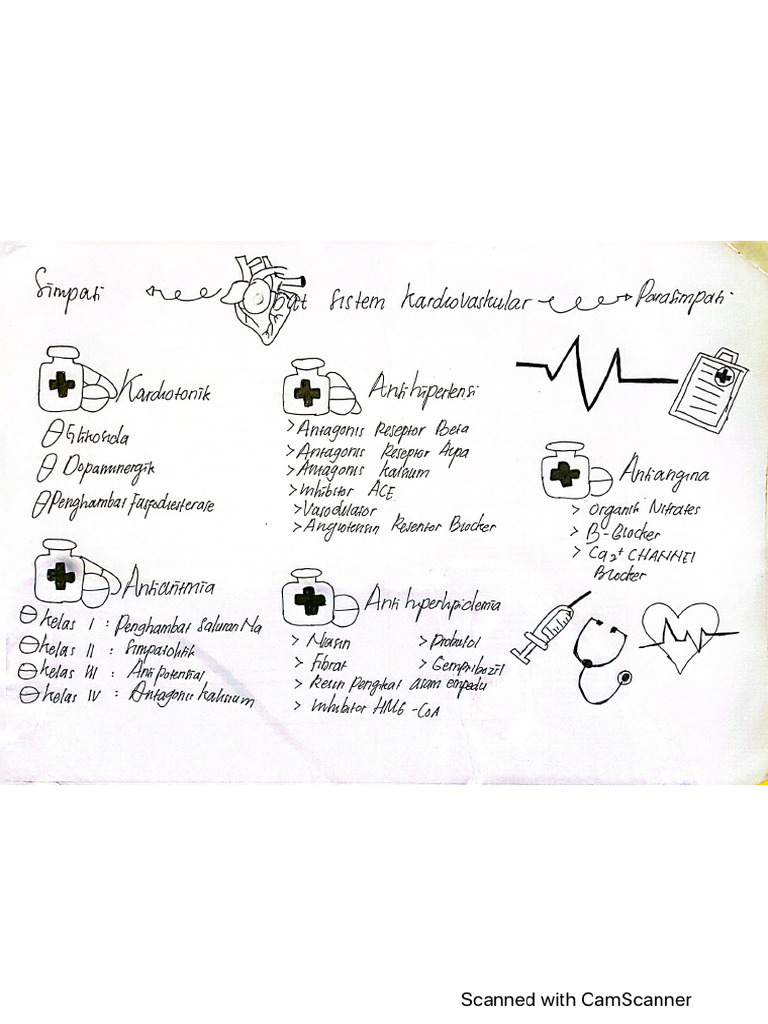 Simpati
Obat Sistem Kardiovaskular
Parasimpati
Kardiotonik
Glikosida
Dopaminergik
Penghambat Fosfodiesterase
Antihipertensi
> Antagonis Reseptor Beta
> Antagonis Reseptor Alpa
> Antagonis kalsium
> Inhibitor ACE
> Vasodilator
> Angiotensin Reseptor Blocker
Antiangina
> Organik Nitrates
> B-Blocker
> Ca2+ CHANNEL
Blocker
Antiaritmia
Kelas I : Penghambat Saluran Na
Kelas II : Simpatolitik
Kelas III : Anti potensial
Kelas IV : Antagonis kalsium
Anti hiperlipidemia
> Niasin
> Probutol
> Fibrat
> Gempribozil
> Resin Pengikat asam empedu
> Inhibitor HMG-CoA
Scanned with CamScanner